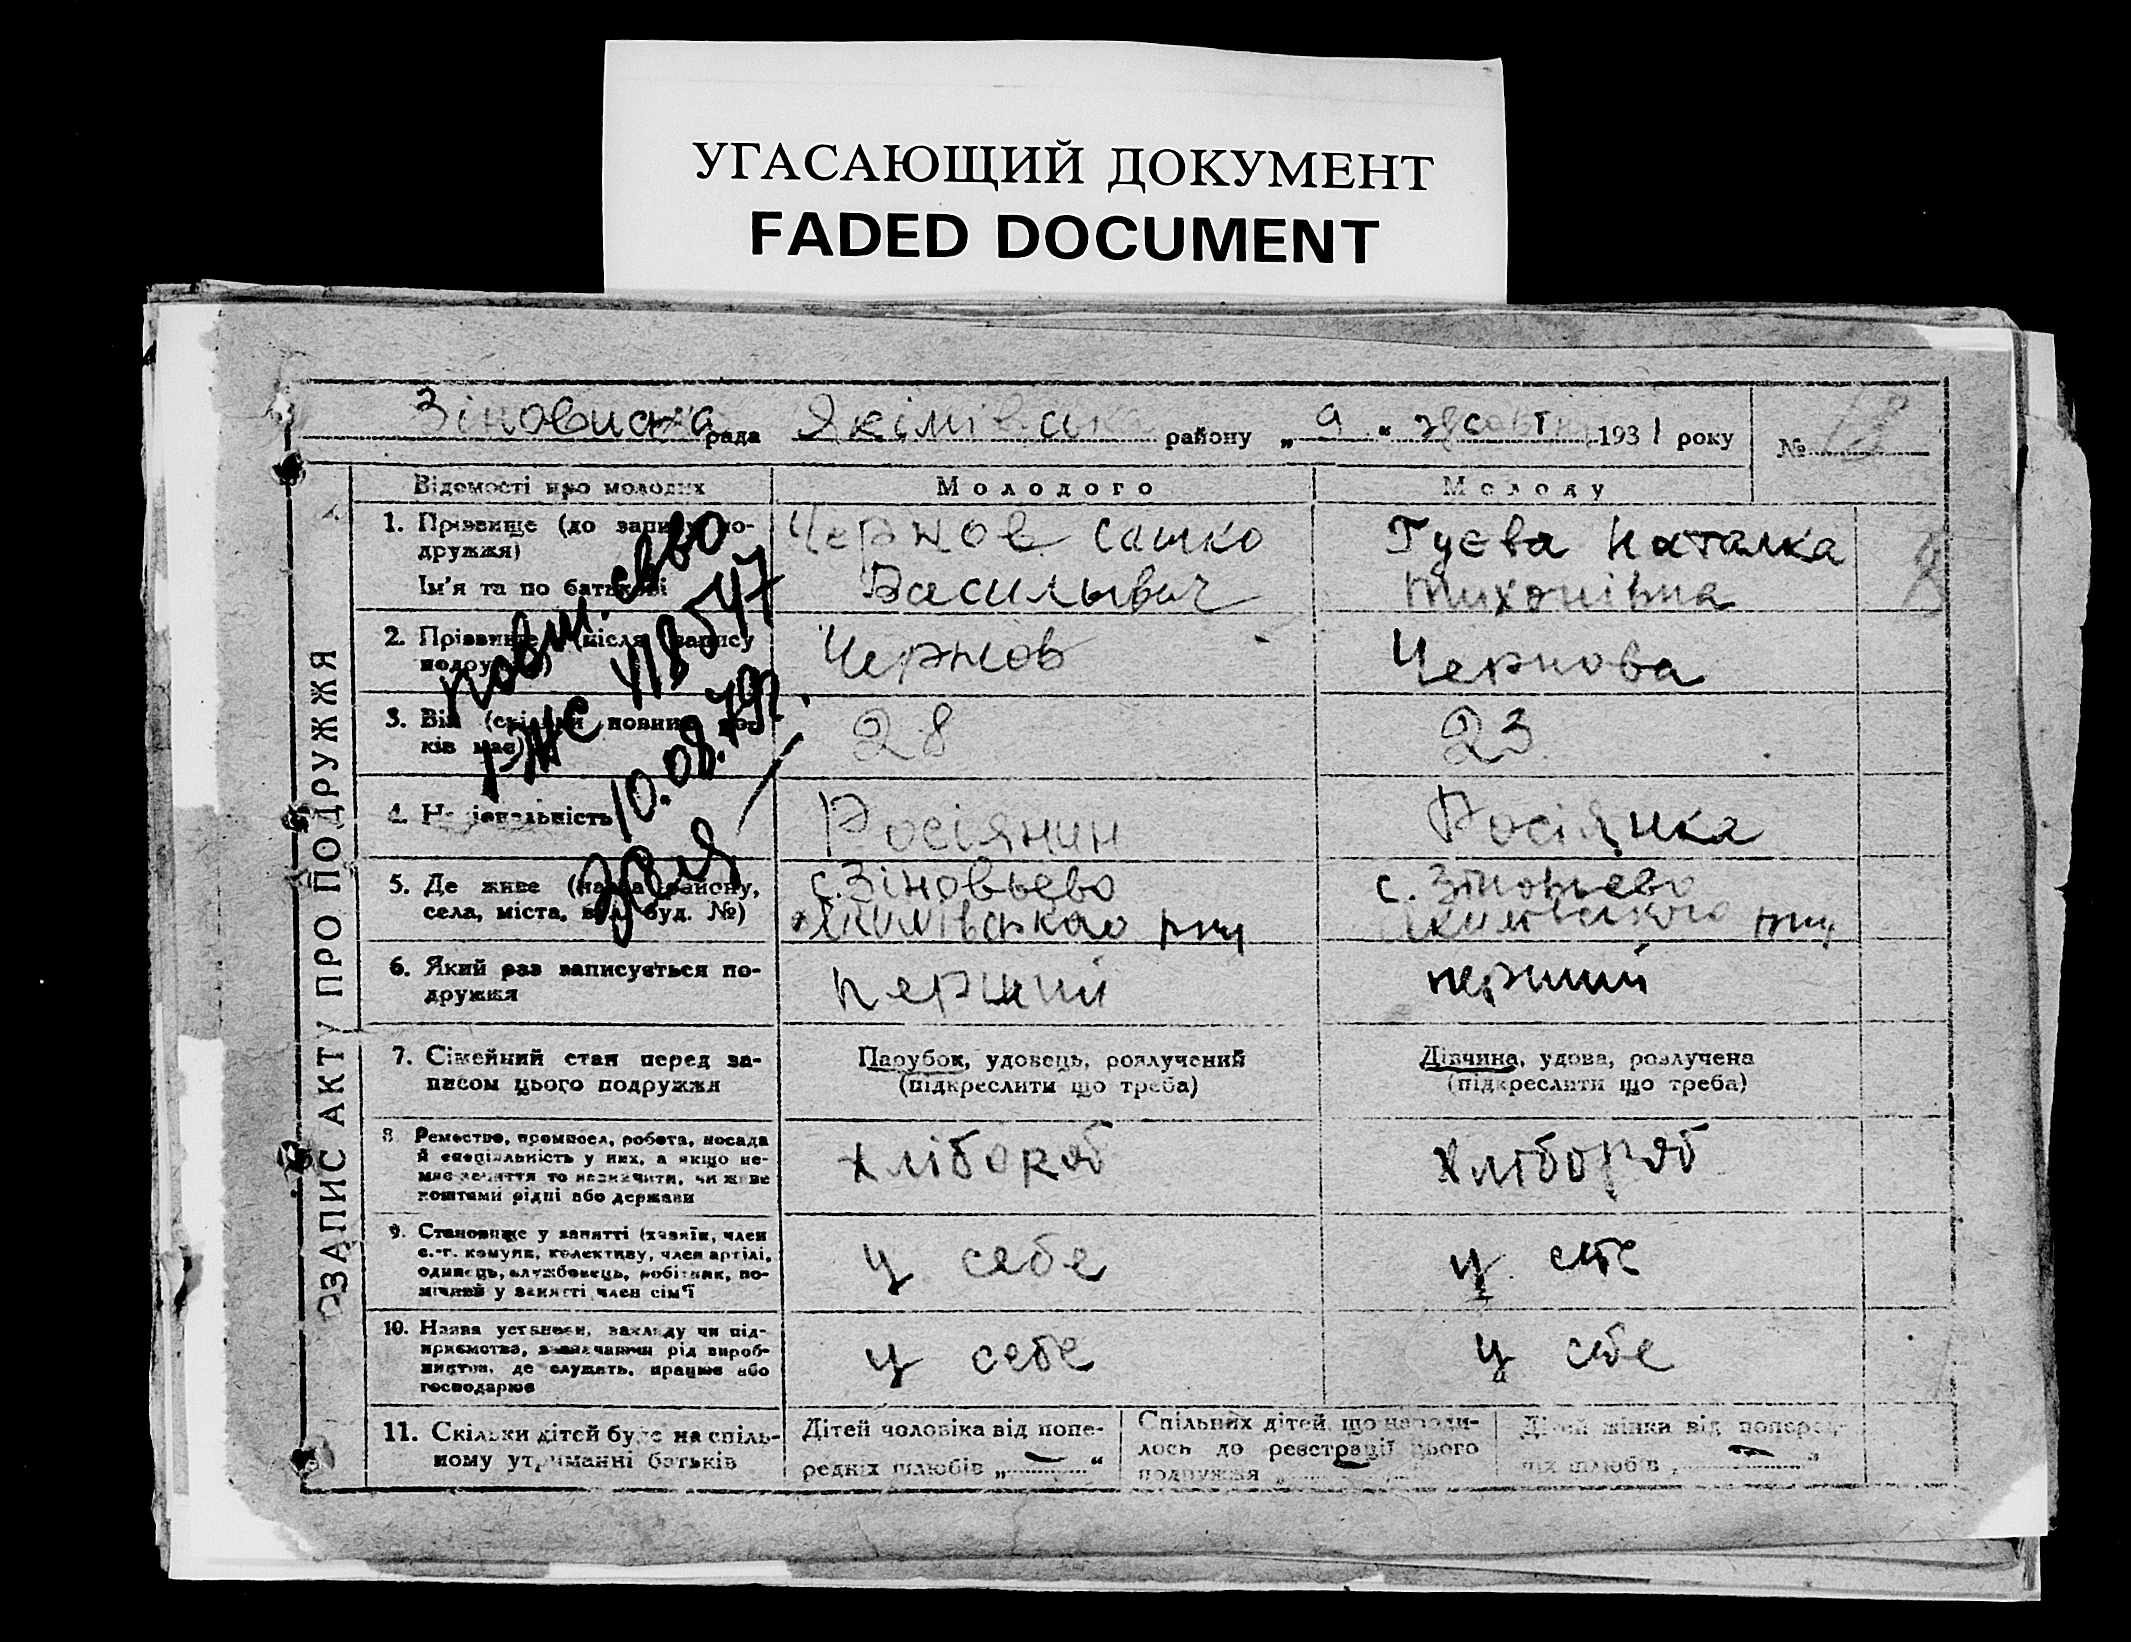 УГАСАЮЩИЙ ДОКУМЕНТ
FADED DOCUMENT
Зіновиська рада Якімівська району „ 9 “ жовтня 1931 року
№ 18
ЗАПИС АКТУ ПРО ПОДРУЖЖЯ
Відомості про молодих Молодого Молоду
1. Прізвище (до запису по-
дружжя)
Ім'я та по батькові
Чернов Сашко
Васильвич
Гуєва Наталка
Тихонівна
2. Прізвище (після запису
подружжя)
Чернов
Чернова
3. Вік (скільки повних ро-
ків має)
28
23
4. Національність
Росіянин
Росіянка
5. Де живе (назва району,
села, міста, вул. буд. №)
с. Зіновьево
Якимівського рну
с. Зіновьево
Якимівського рну
6. Який раз записується по-
дружжя
перший
перший
7. Сімейний стан перед за-
писом цього подружжя
Парубок, удовець, розлучений
(підкреслити що треба)
Дівчина, удова, розлучена
(підкреслити що треба)
8. Ремество, промисел, робота, посада
й спеціальність у них, а якщо не-
має заняття то зазначити, чи живе
коштами рідні або держави
хлібороб
хлібороб
9. Становище у занятті (хазяїн, член
с.-г. комуни, колективу, член артілі,
одинець, службовець, робітник, по-
мічний у занятті член сім'ї
у себе
у себе
10. Назва установи, закладу чи під-
приємства, зазначаючи рід вироб-
ництва, де служить, працює або
господарює
у себе
у себе
11. Скільки дітей буде на спіль-
ному утриманні батьків
Дітей чоловіка від попе-
редніх шлюбів „ — “
Спільних дітей, що народи-
лось до реєстрації цього
подружжя „ —
Дітей жінки від поперед-
ніх шлюбів „ — “
повт. св-во
10.08.79р.